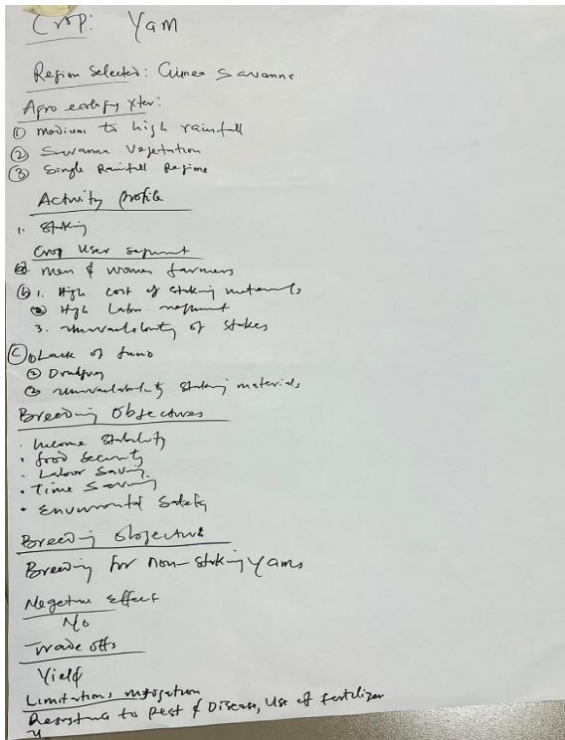 Crop: Yam
Region Selected: Guinea Savanna
Agro ecology xter:
① medium to high rainfall
② Savanna Vegetation
③ Single Rainfall Regime
Activity profile
1. Staking
Crop User segment
ⓐ men & women farmers
ⓑ 1. High cost of staking materials
② High Labor
3. unavailability of stakes
Ⓒ ① Lack of fund
② Drudgery
③ unavailability staking materials
Breeding Objectives
· Income Stability
• food Security
· Labour Saving
• Time Saving
• Environmental Safety
Breeding Objective
Breeding for non-Staking Yams
Negative Effect
No
Trade offs
Yield
Limitations mitigation
Resistance to Pest & Disease, Use of fertilizer